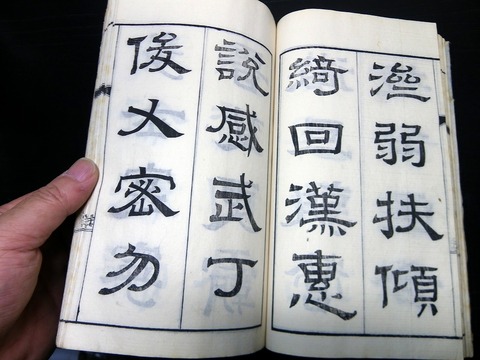 濟弱扶傾
綺回漢惠
說感武丁
俊乂密勿